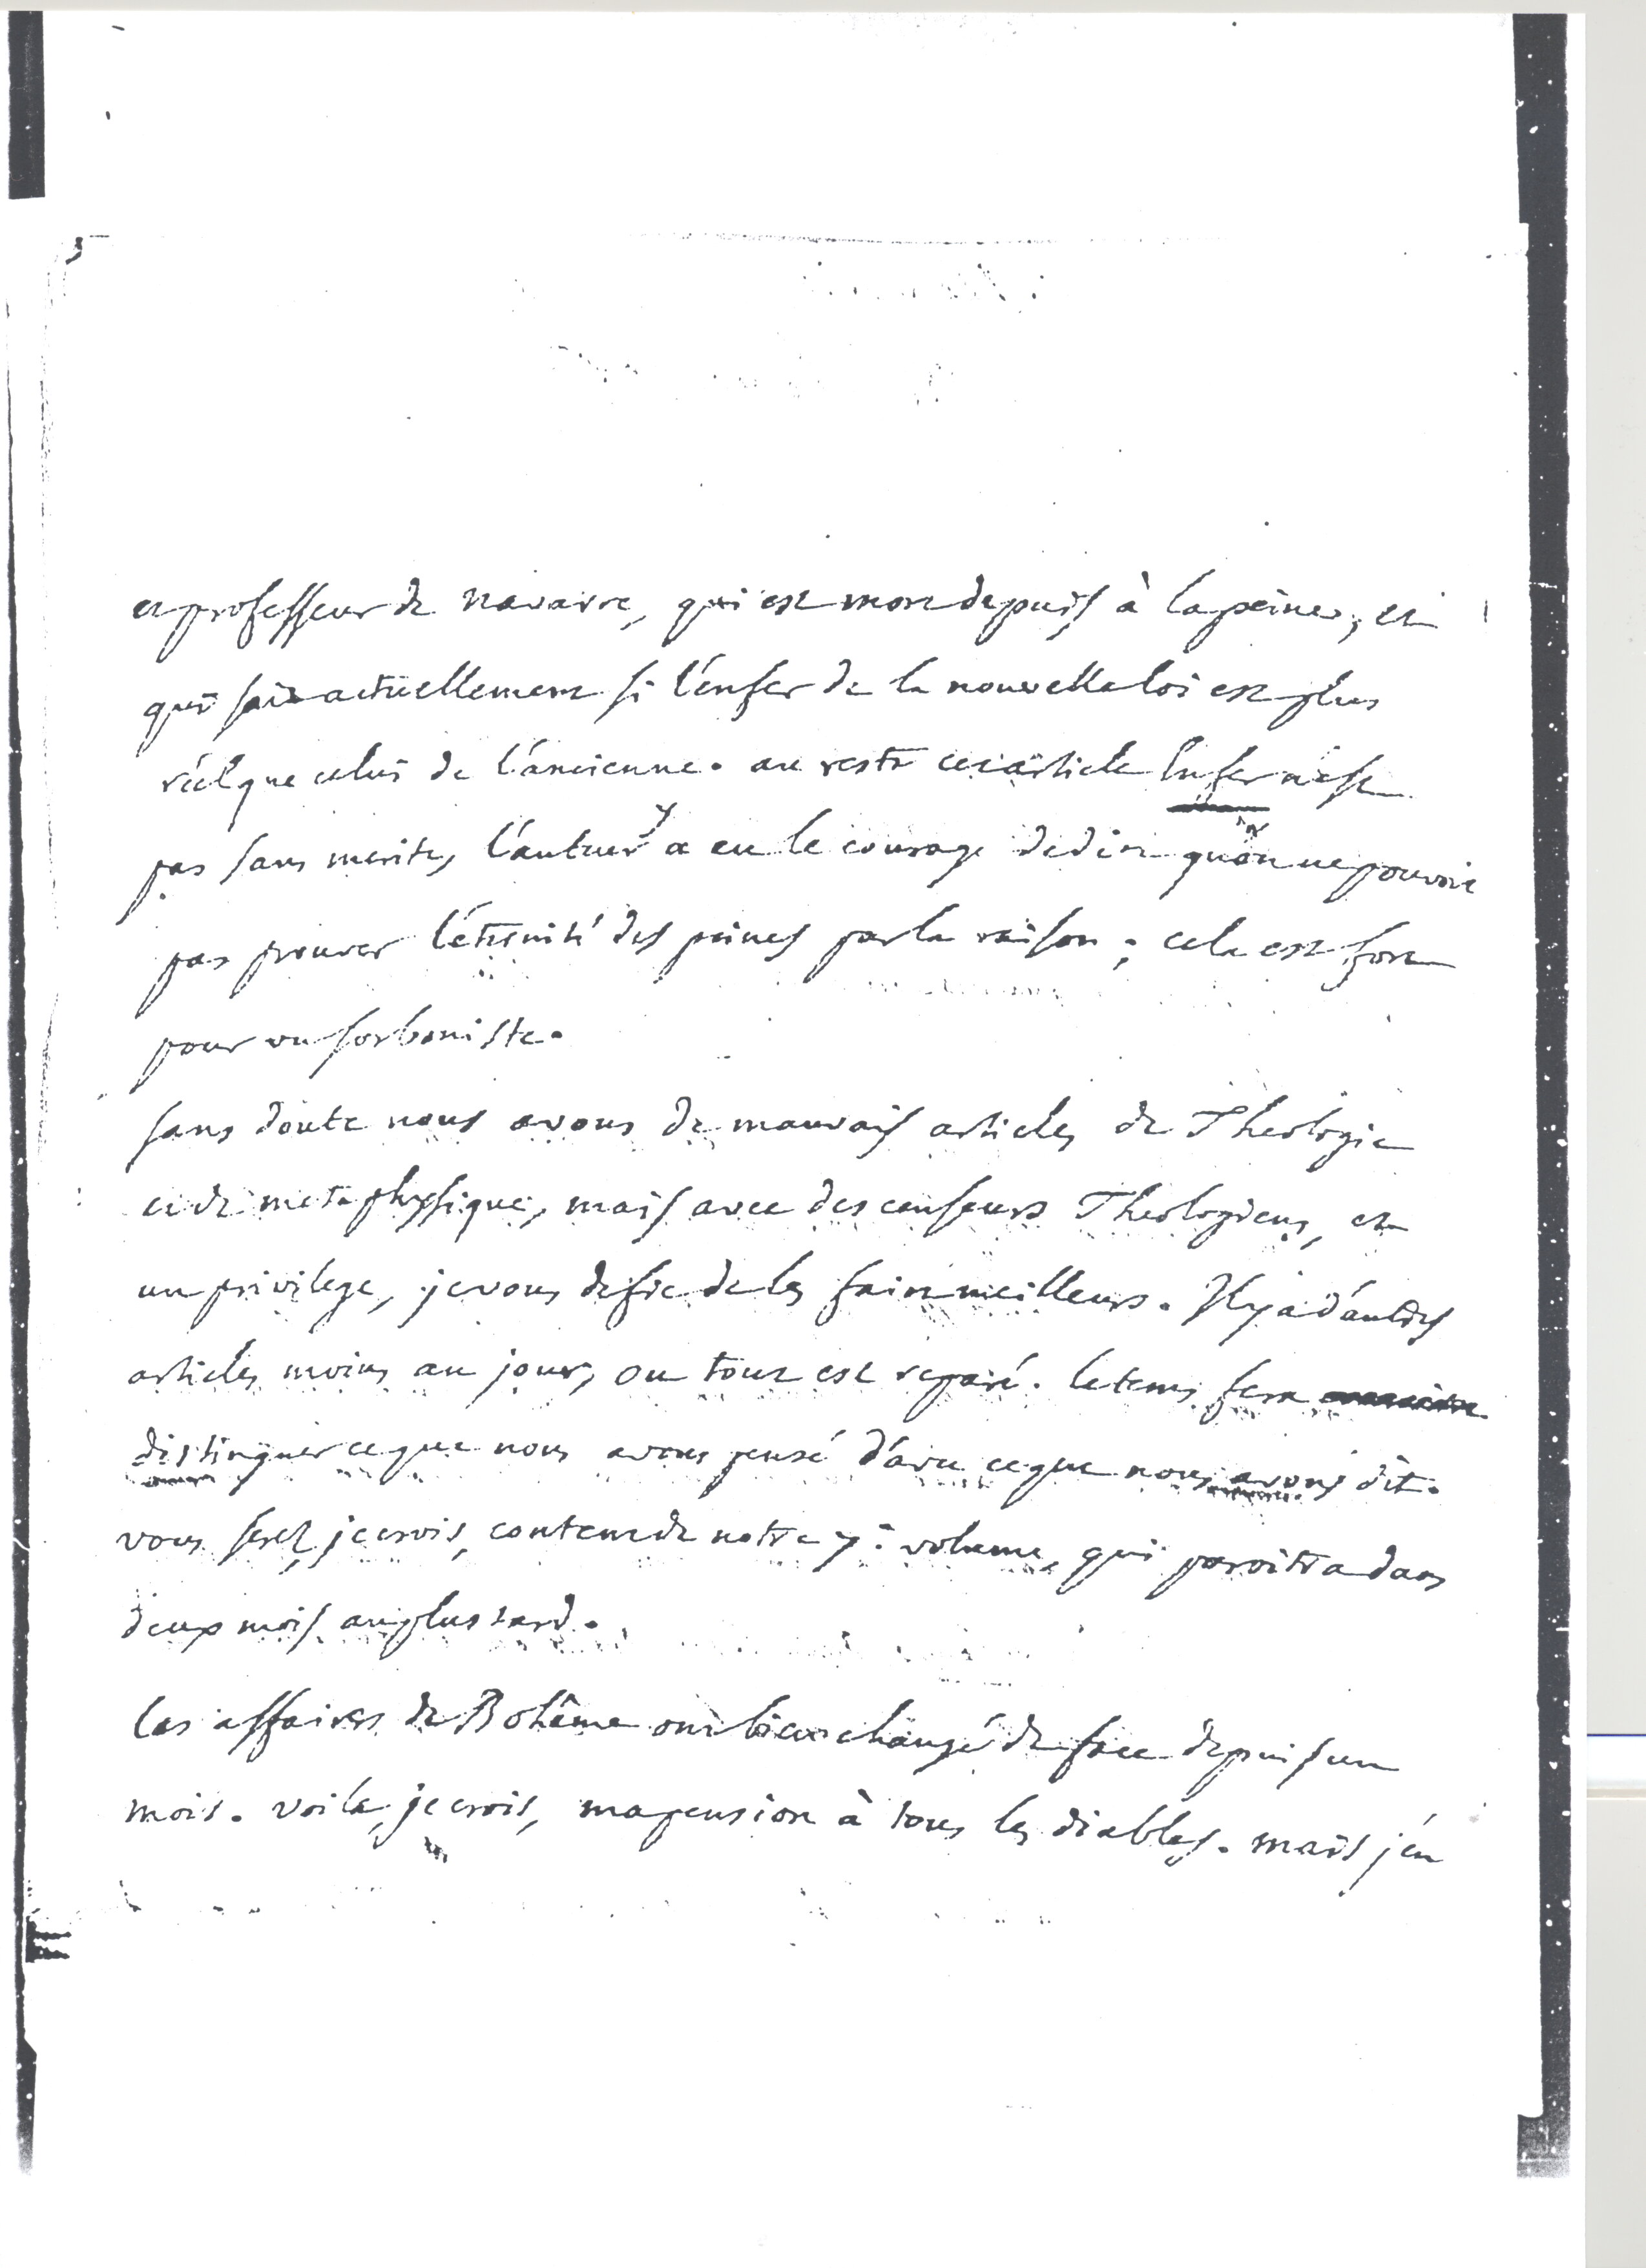 et professeur de navarre, qui est mort depuis à la peine, et
qui sait actuellement si l'enfer de la nouvelle loi est plus
réel que celui de l'ancienne. au reste cet article Enfer n'est
pas sans merite, l'auteur y a eu le courage de dire qu'on ne pouvoit
pas prouver l'éternité des peines par la raison; cela est fort
pour un sorboniste.
sans doute nous avons de mauvais articles de Theologie
et de metaphysique, mais avec des censeurs Theologiens, et
un privilege, je vous defie de les faire meilleurs. Il y a d'autres
articles moins au jour, ou tout est reparé. le tems fera
distinguer ce que nous avons pensé d'avec ce que nous avons dit.
vous serez, je crois, content de notre 7e volume, qui paroitra dans
deux mois au plus tard.
les affaires de Bohême ont bien changé de face depuis un
mois. voila, je crois, ma pension à tous les diables. mais j'en